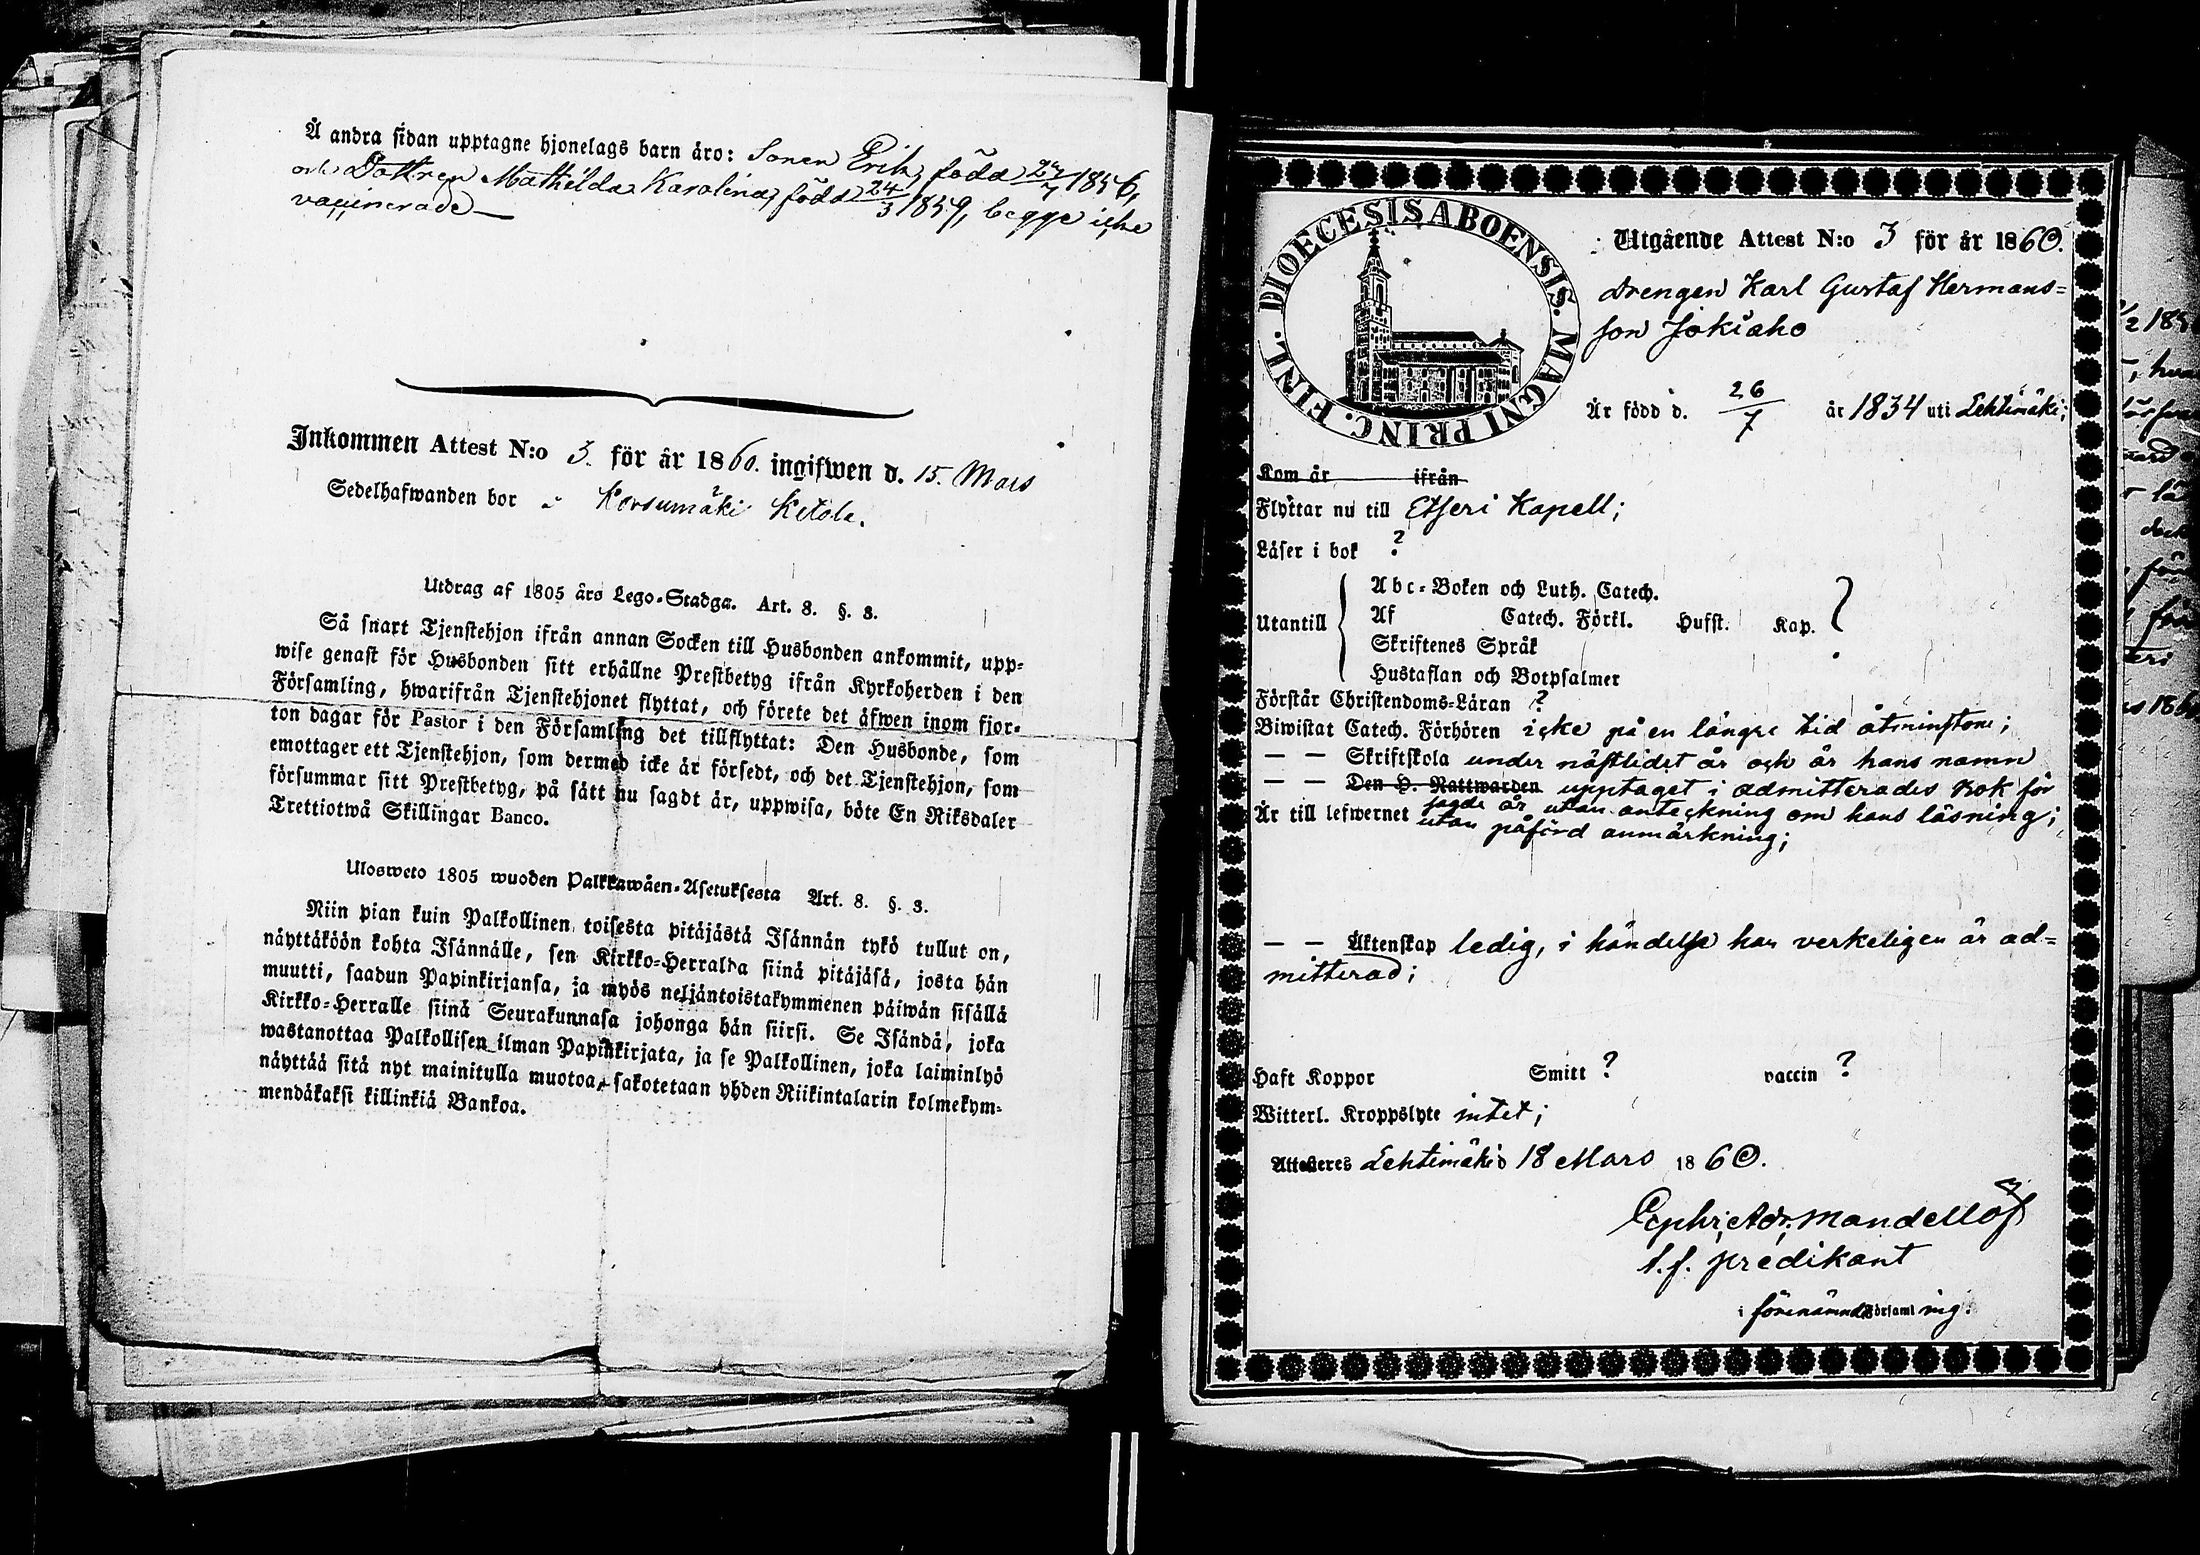 Å andra sidan upptagne hjonelags barn äro: Sonen Erik, född 24/7 1856,
och Dottren Mathilda Karolina, född 24/3 1859, begge icke
vaccinerade —
Inkommen Attest N:o 3. för år 1860. ingifwen d. 15. Mars
Sedelhafwanden bor i Korsumäki Ketola.
Utdrag af 1805 års Lego-Stadga. Art. 8. §. 3.
Så snart Tjenstehjon ifrån annan Socken till Husbonden ankommit, upp-
wise genast för Husbonden sitt erhållne Prestbetyg ifrån Kyrkoherden i den
Församling, hwarifrån Tjenstehjonet flyttat, och förete det äfwen inom fjor-
ton dagar för Pastor i den Församling det tillflyttat: Den Husbonde, som
emottager ett Tjenstehjon, som dermed icke är försedt, och det Tjenstehjon, som
försummar sitt Prestbetyg, på sätt nu sagdt är, uppwisa, böte En Riksdaler
Trettiotwå Skillingar Banco.
Ulosweto 1805 wuoden Palkkawäen-Asetuksesta Art. 8. §. 3.
Niin pian kuin Palkollinen toisesta pitäjästä Isännän tykö tullut on,
näyttäköön kohta Isännälle, sen Kirkko-Herralda siinä pitäjäsä, josta hän
muutti, saadun Papinkirjansa, ja myös neljäntoistakymmenen päiwän sisällä
Kirkko-Herralle siinä Seurakunnasa johonga hän siirsi. Se Isändä, joka
wastanottaa Palkollisen ilman Papinkirjata, ja se Palkollinen, joka laiminlyö
näyttää sitä nyt mainitulla muotoa, sakotetaan yhden Riikintalarin kolmekym-
mendäkaksi killinkiä Bankoa.
DIOECESIS ABOENSIS. MAGNI PRINC. FINL.
Utgående Attest N:o 3 för år 1860.
Drengen Karl Gustaf Hermans=
son Jokiaho
Är född d. 26/7 år 1834 uti Lehtimäki;
Kom år ifrån
Flyttar nu till Etseri Kapell;
Läser i bok ?
Utantill
Abc-Boken och Luth. Catech.
Af Catech. Förkl. Hufst. Kap. ?
Skriftenes Språk
Hustaflan och Botpsalmer
Förstår Christendoms-Läran ?
Biwistat Catech. Förhören icke på en längre tid åtminstone;
— — Skriftskola under nästlidet år och är hans namn
— — Den H. Nattwarden upptaget i admitterades Bok för
sagde år utan anteckning om hans läsning;
Är till lefwernet utan påförd anmärkning;
— — Äktenskap ledig, i händelse han verkeligen är ad=
mitterad;
Haft Koppor Smitt ? vaccin ?
Witterl. Kroppslyte intet;
Attesteres Lehtimäki d 18 Mars 1860.
Adr. Mandellöf
t.f. predikant
i förenämnde Församling.